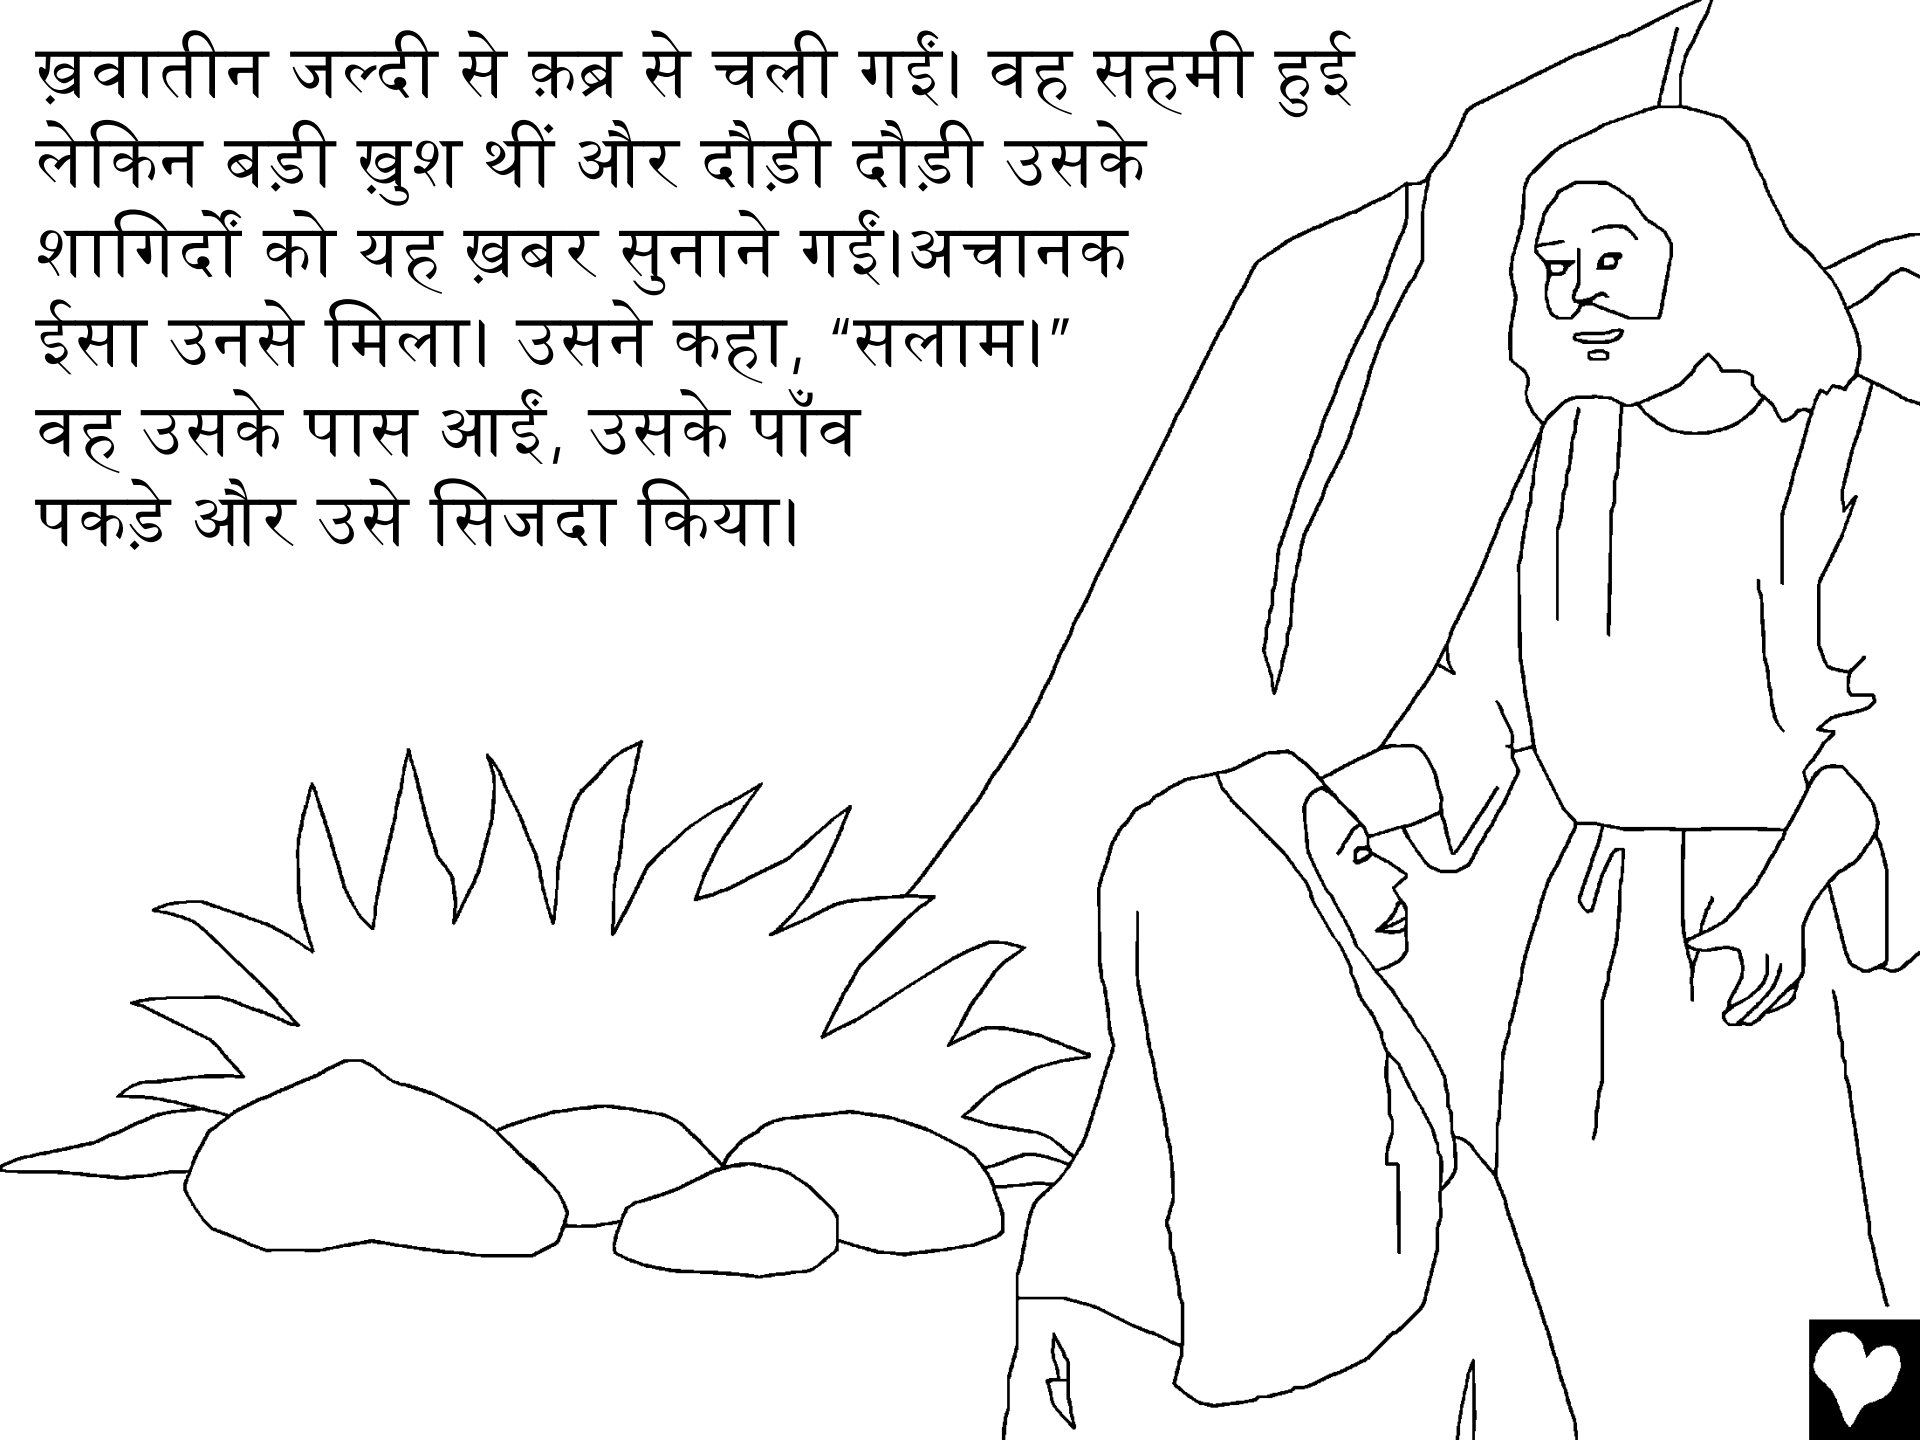 ख़वातीन जल्दी से क़ब्र से चली गईं। वह सहमी हुई
लेकिन बड़ी ख़ुश थीं और दौड़ी दौड़ी उसके
शागिर्दों को यह ख़बर सुनाने गईं।अचानक
ईसा उनसे मिला। उसने कहा, “सलाम।”
वह उसके पास आईं, उसके पाँव
पकड़े और उसे सिजदा किया।